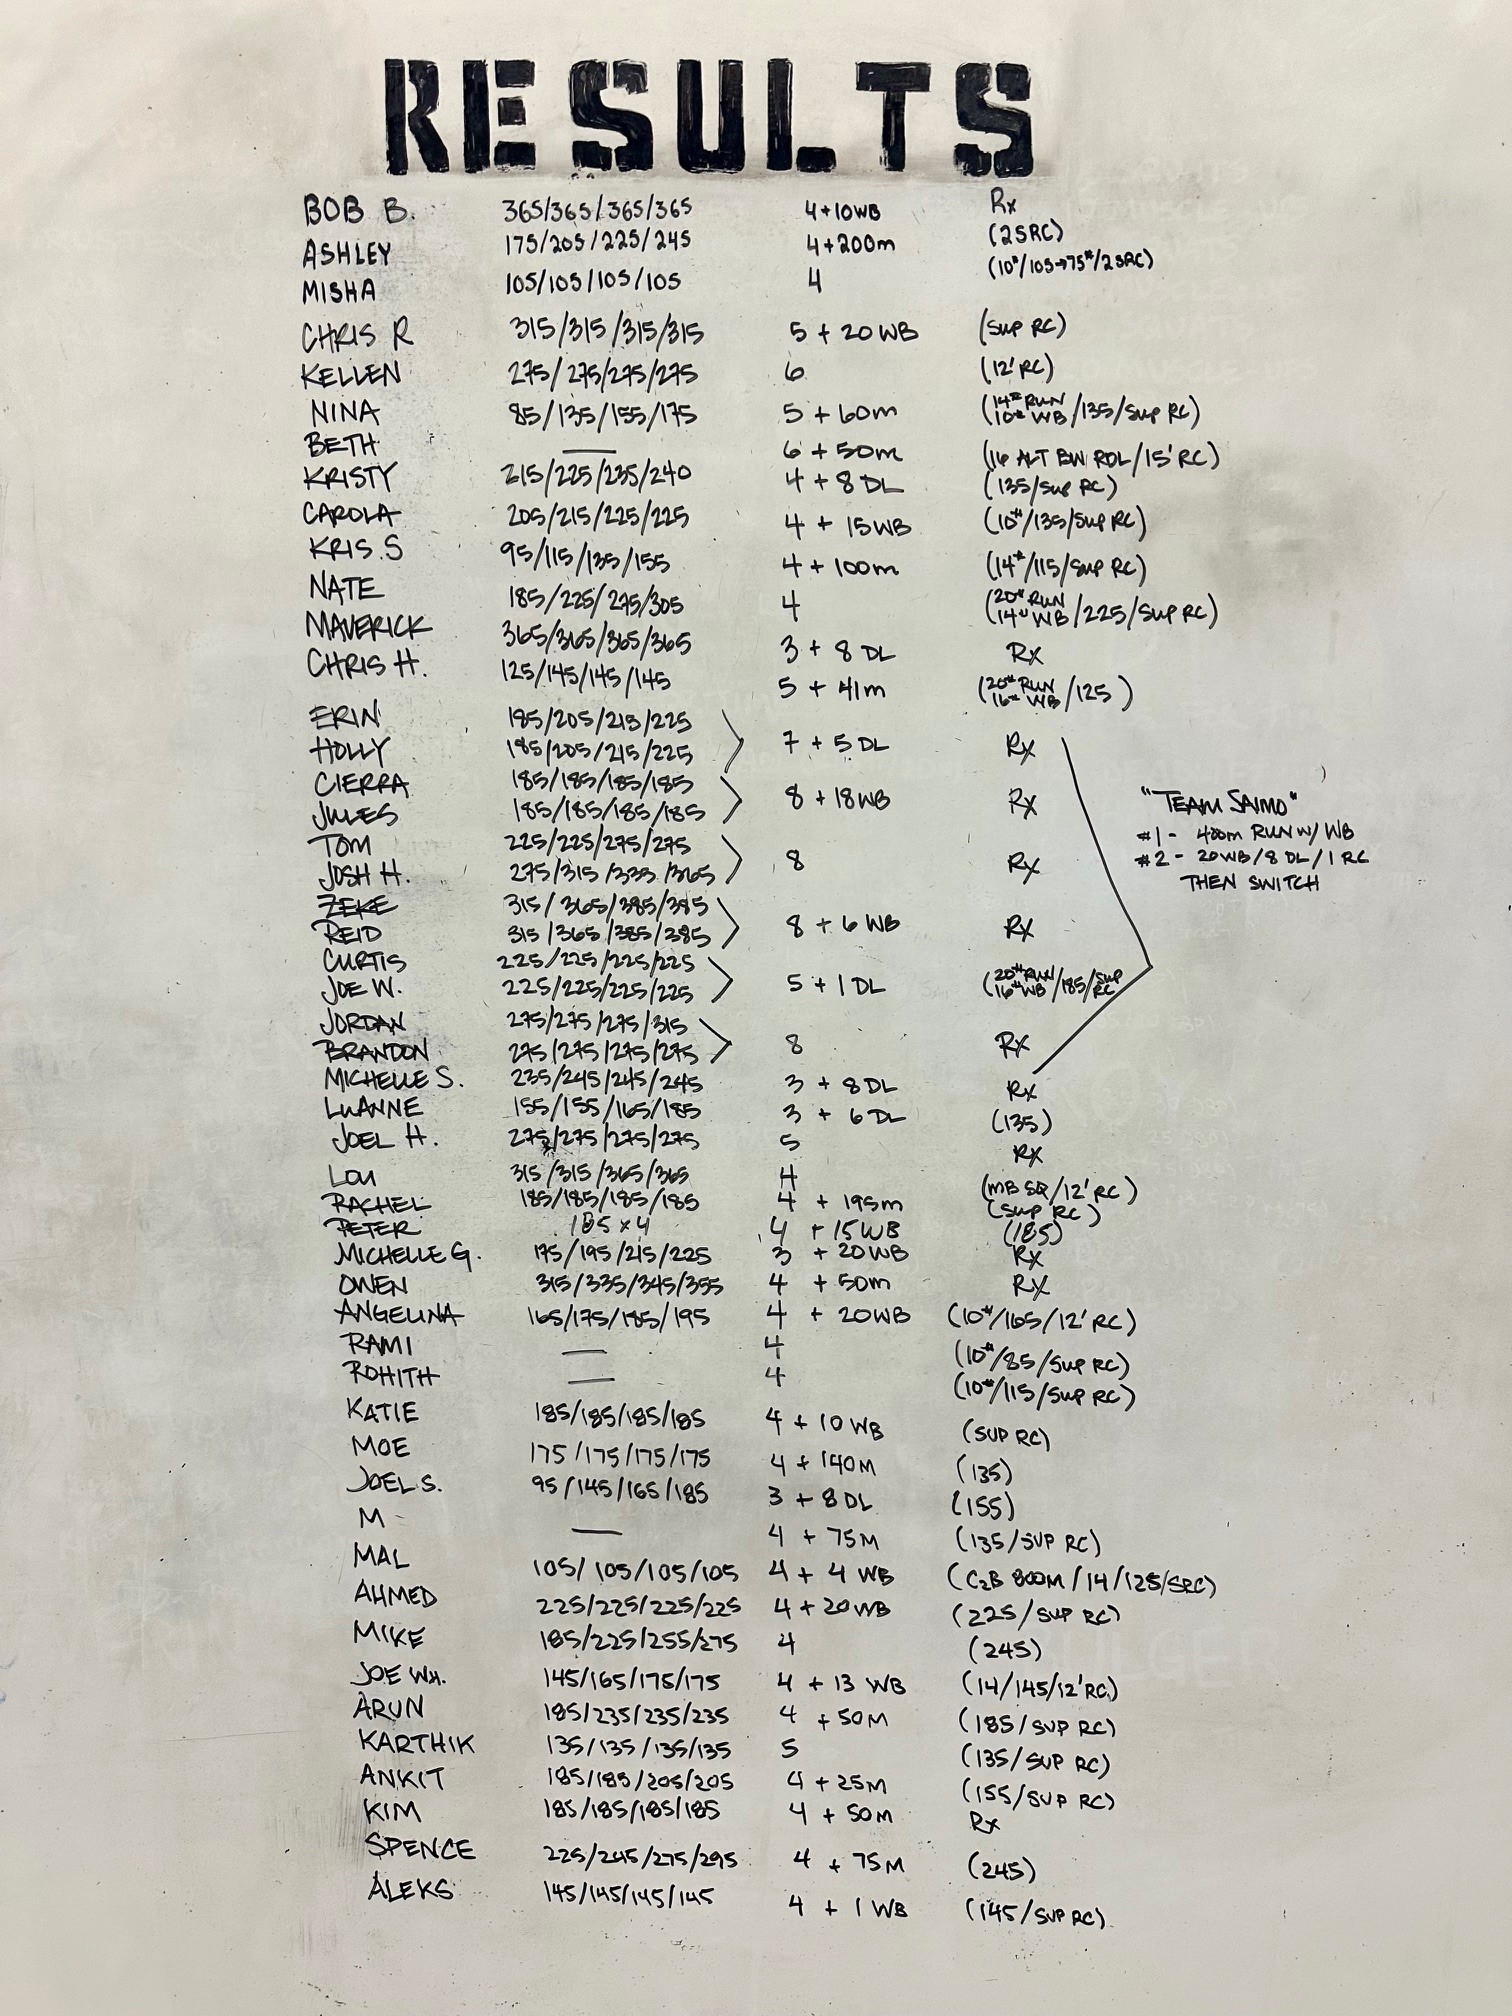 RESULTS
BOB B. 365/365/365/365 4+10WB Rx
ASHLEY 175/205/225/245 4+200m (2SRC)
MISHA 105/105/105/105 4 (10#/105→75#/2SRC)
CHRIS R 315/315/315/315 5 + 20 WB (SUP RC)
KELLEN 275/275/275/275 6 (12' RC)
NINA 85/135/155/175 5 + 60m (14# RUN 10# WB/135/SUP RC)
BETH — 6 + 50m (16 ALT BW RDL/15' RC)
KRISTY 215/225/235/240 4 + 8 DL (135/SUP RC)
CAROLA 205/215/225/225 4 + 15WB (10#/135/SUP RC)
KRIS S 95/115/135/155 4 + 100m (14#/115/SUP RC)
NATE 185/225/275/305 4 (20# RUN 14# WB/225/SUP RC)
MAVERICK 365/365/365/365 3 + 8 DL Rx
CHRIS H. 125/145/145/145 5 + 41m (20# RUN 16# WB/125)
ERIN 185/205/215/225
HOLLY 185/205/215/225 7 + 5 DL Rx
CIERRA 185/185/185/185
JULES 185/185/185/185 8 + 18WB Rx
"TEAM SAIMO"
#1 - 400m RUN W/ WB
#2 - 20WB/8 DL/1 RC
THEN SWITCH
TOM 225/225/275/275
JOSH H. 275/315/335/365 8 Rx
ZEKE 315/365/385/385
REID 315/365/385/385 8 + 6 WB Rx
CURTIS 225/225/225/225
JOE W. 225/225/225/225 5 + 1 DL (20# RUN 16# WB/185/SUP RC
JORDAN 275/275/275/315
BRANDON 275/275/275/275 8 Rx
MICHELLE S. 235/245/245/245 3 + 8DL Rx
LUANNE 155/155/165/185 3 + 6 DL (135)
JOEL H. 275/275/275/275 5 Rx
LOU 315/315/365/365 4 (MB SQ/12' RC)
RACHEL 185/185/185/185 4 + 195m (SUP RC)
PETER 185 x 4 4 + 15WB (185)
MICHELLE G. 175/195/215/225 3 + 20WB Rx
OWEN 315/335/345/355 4 + 50m RX
ANGELINA 165/175/185/195 4 + 20WB (10#/165/12' RC)
RAMI — 4 (10#/85/SUP RC)
ROHITH — 4 (10#/115/SUP RC)
KATIE 185/185/185/185 4 + 10 WB (SUP RC)
MOE 175/175/175/175 4 + 140M (135)
JOEL S. 95/145/165/185 3 + 8 DL (155)
M — 4 + 75M (135/SUP RC)
MAL 105/105/105/105 4 + 4 WB (C2B 800M/14/125/SRC)
AHMED 225/225/225/225 4 + 20WB (225/SUP RC)
MIKE 185/225/255/275 4 (245)
JOE WH. 145/165/175/175 4 + 13 WB (14/145/12'RC)
ARUN 185/235/235/235 4 + 50M (185/SUP RC)
KARTHIK 135/135/135/135 5 (135/SUP RC)
ANKIT 185/185/205/205 4 + 25M (155/SUP RC)
KIM 185/185/185/185 4 + 50M Rx
SPENCE 225/245/275/295 4 + 75M (245)
ALEKS 145/145/145/145 4 + 1 WB (145/SUP RC)